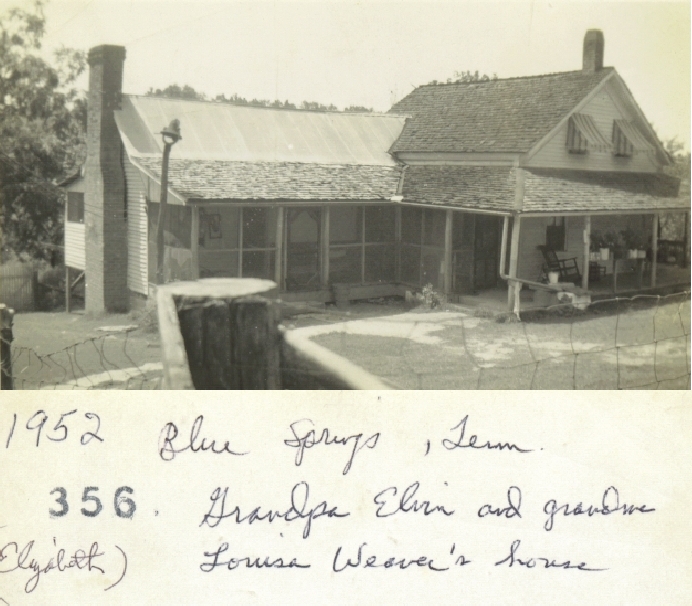 1952 Blue Springs, Tenn.
356. Grandpa Elvin and grandma
(Elizabeth) Louisa Weaver's house